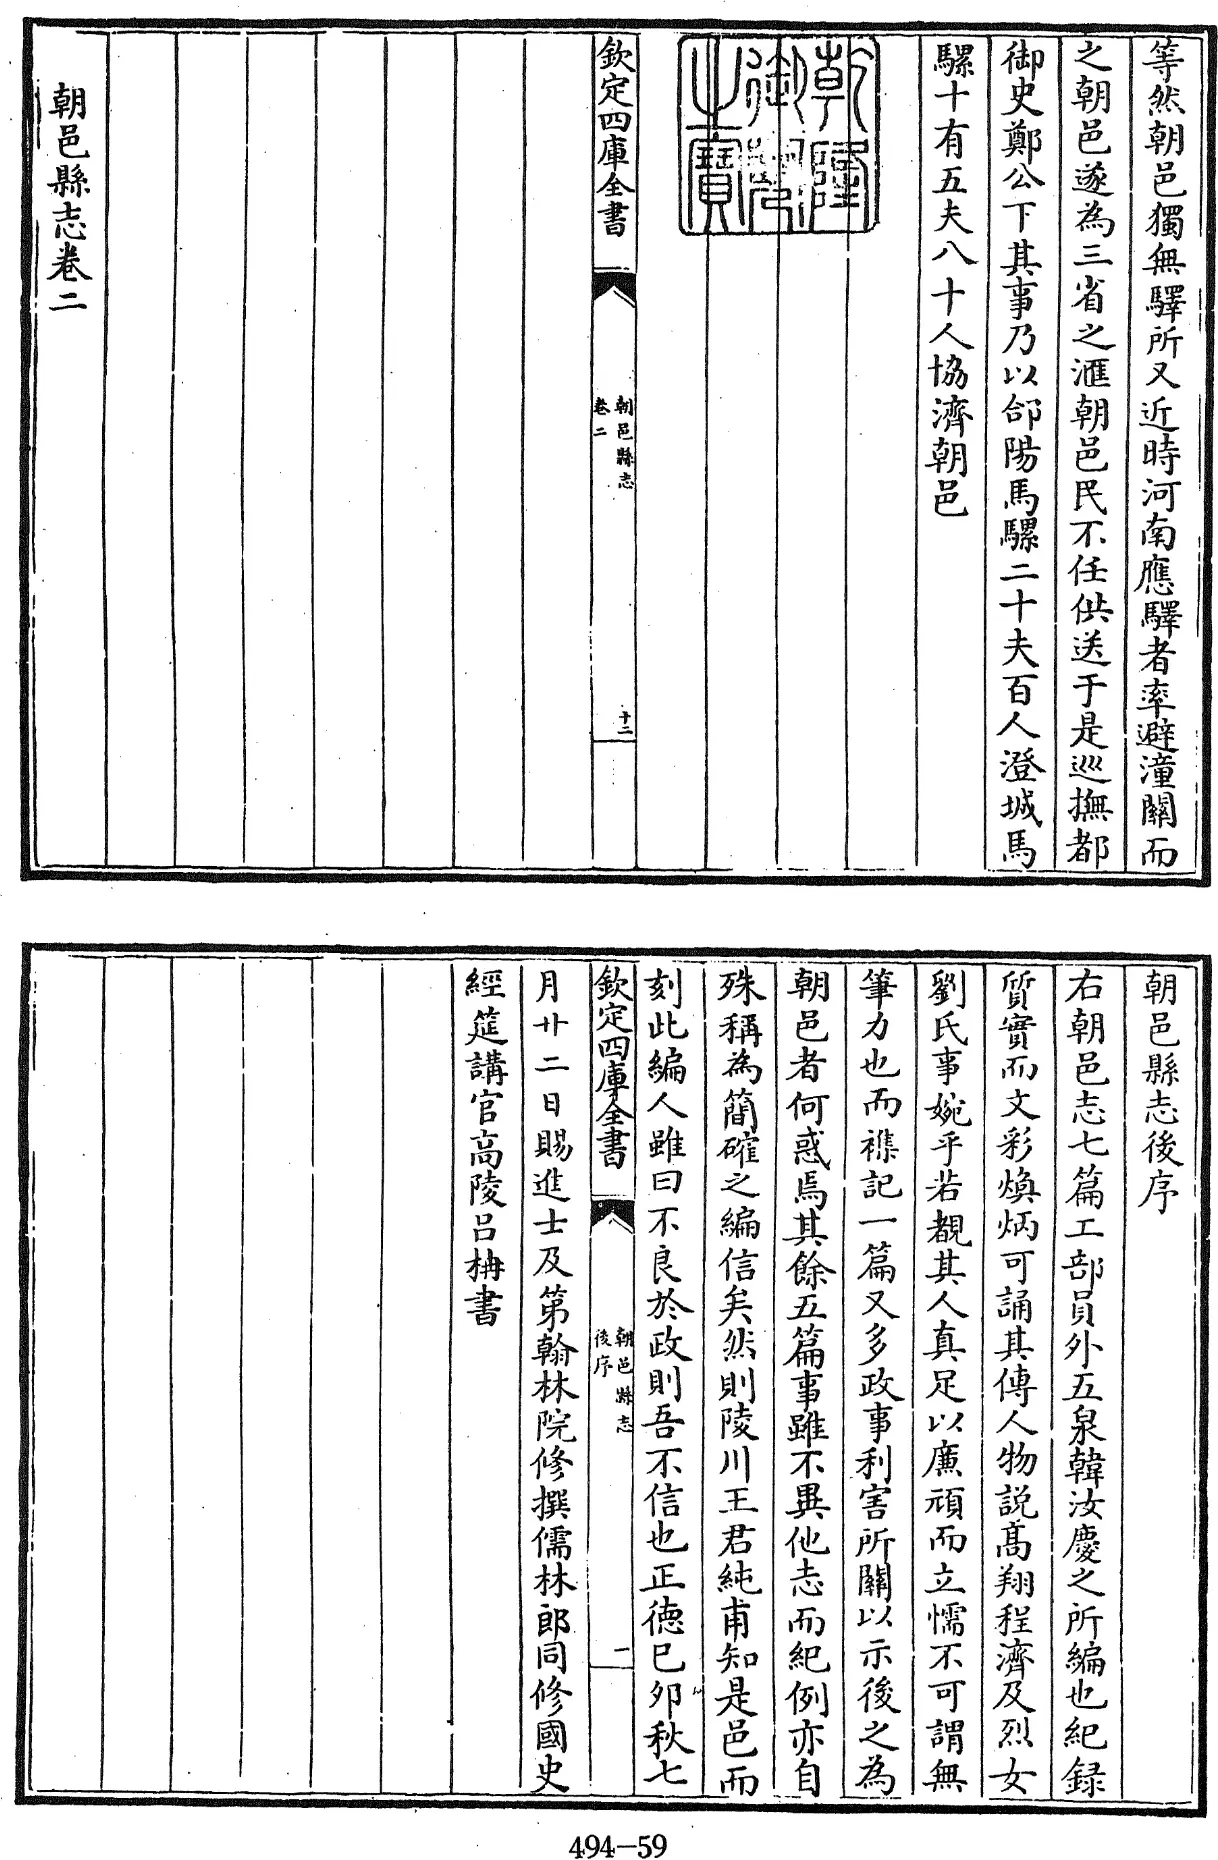 等然朝邑獨無驛所又近時河南應驛者率避潼關而
之朝邑遂為三省之滙朝邑民不任供送于是巡撫都
御史鄭公下其事乃以郃陽馬騾二十夫百人澄城馬
騾十有五夫八十人協濟朝邑
乾隆御覽之寶
欽定四庫全書
朝邑縣志
卷二
十二
朝邑縣志卷二
朝邑縣志後序
右朝邑志七篇工部員外五泉韓汝慶之所編也紀録
質實而文彩煥炳可誦其傳人物説髙翔程濟及烈女
劉氏事婉乎若覩其人真足以廉頑而立懦不可謂無
筆力也而襍記一篇又多政事利害所關以示後之為
朝邑者何惑焉其餘五篇事雖不異他志而紀例亦自
殊稱為簡確之編信矣然則陵川王君純甫知是邑而
刻此編人雖曰不良於政則吾不信也正德己卯秋七
欽定四庫全書
朝邑縣志
後序
一
月廿二日賜進士及第翰林院修撰儒林郎同修國史
經筵講官高陵吕柟書
494-59